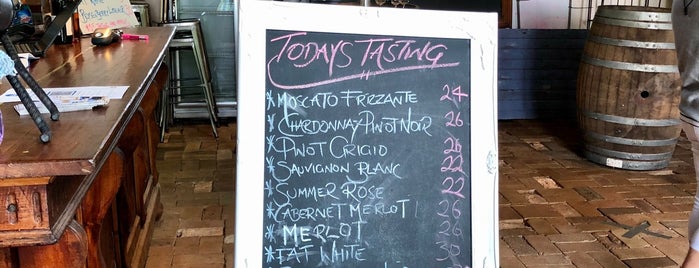 TODAYS TASTING
*MOSCATO FRIZZANTE 24
*CHARDONNAY PINOT NOIR 26
*PINOT GRIGIO 26
*SAUVIGNON BLANC 22
*SUMMER ROSE 22
*CABERNET MERLOT 26
*MERLOT 26
*FAT WHITE 30